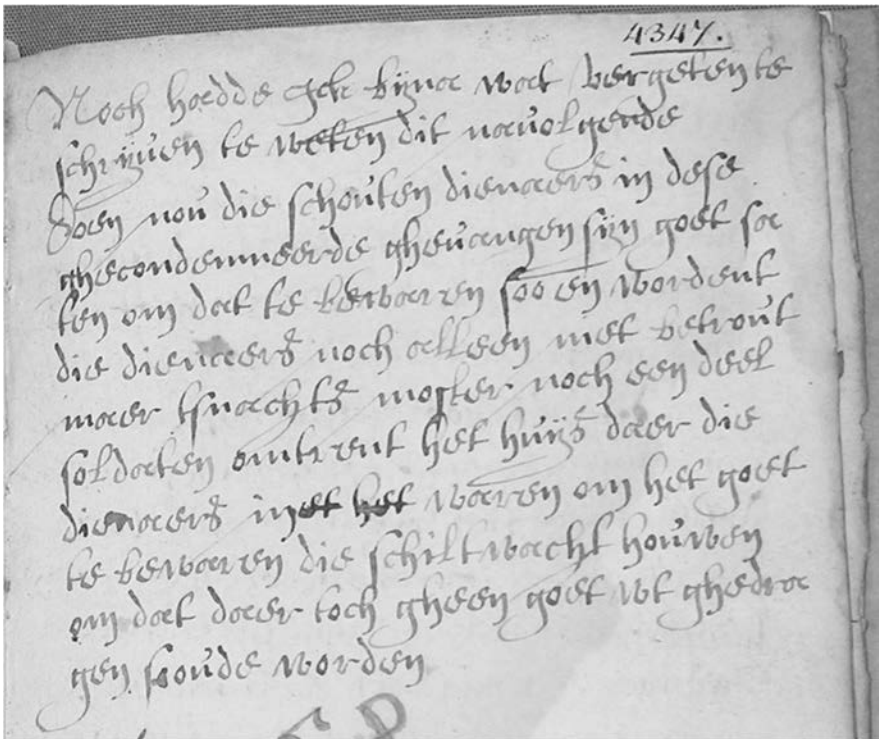 4347.
Noch hadde Ick bijna wat vergeten te
schrijven te weten dit navolgende
Doen nou die schouten dienaers in dese
ghecondemneerde ghevangen sijn goet sa
ten om dat te bewaren soo en wordent
die dienaers noch alleen niet betrout
maer tsnachts moster noch een deel
soldaten omtrent het huijs daer die
dienaers in waren om het goet
te bewaren die schiltwacht houwen
om dat daer toch gheen goet wt ghedra
gen soude worden